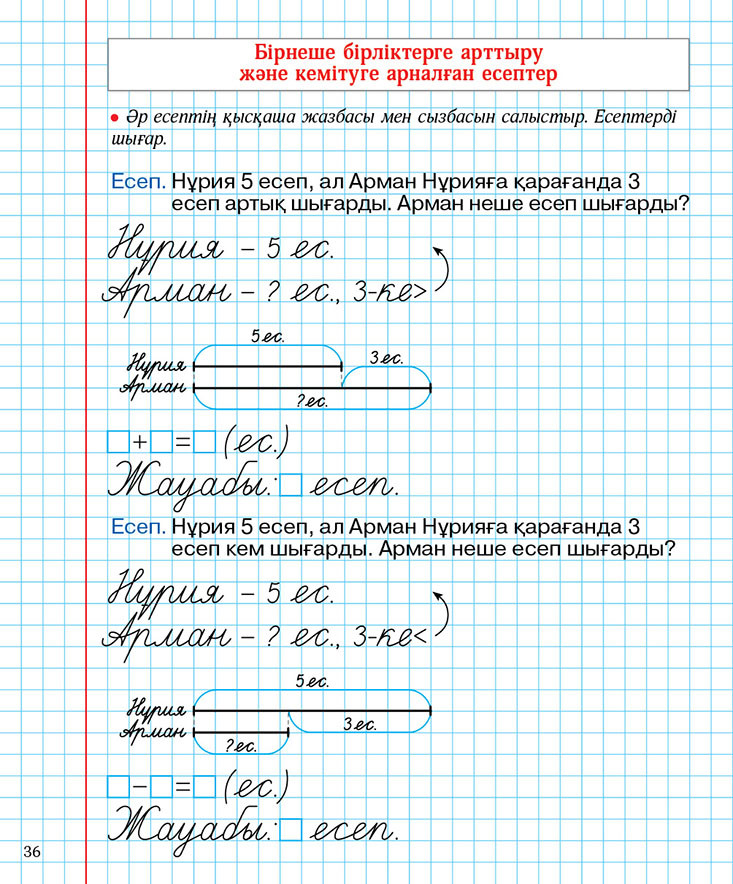 Бірнеше бірліктерге арттыру
және кемітуге арналған есептер
• Әр есептің қысқаша жазбасы мен сызбасын салыстыр. Есептерді
шығар.
Есеп. Нұрия 5 есеп, ал Арман Нұрияға қарағанда 3
есеп артық шығарды. Арман неше есеп шығарды?
Нұрия – 5 ес.
Арман – ? ес., 3-ке>
5 ес.
Нұрия 3 ес.
Арман
? ес.
□ + □ = □ (ес.)
Жауабы: □ есеп.
Есеп. Нұрия 5 есеп, ал Арман Нұрияға қарағанда 3
есеп кем шығарды. Арман неше есеп шығарды?
Нұрия – 5 ес.
Арман – ? ес., 3-ке<
5 ес.
Нұрия
Арман 3 ес.
? ес.
□ – □ = □ (ес.)
Жауабы: □ есеп.
36